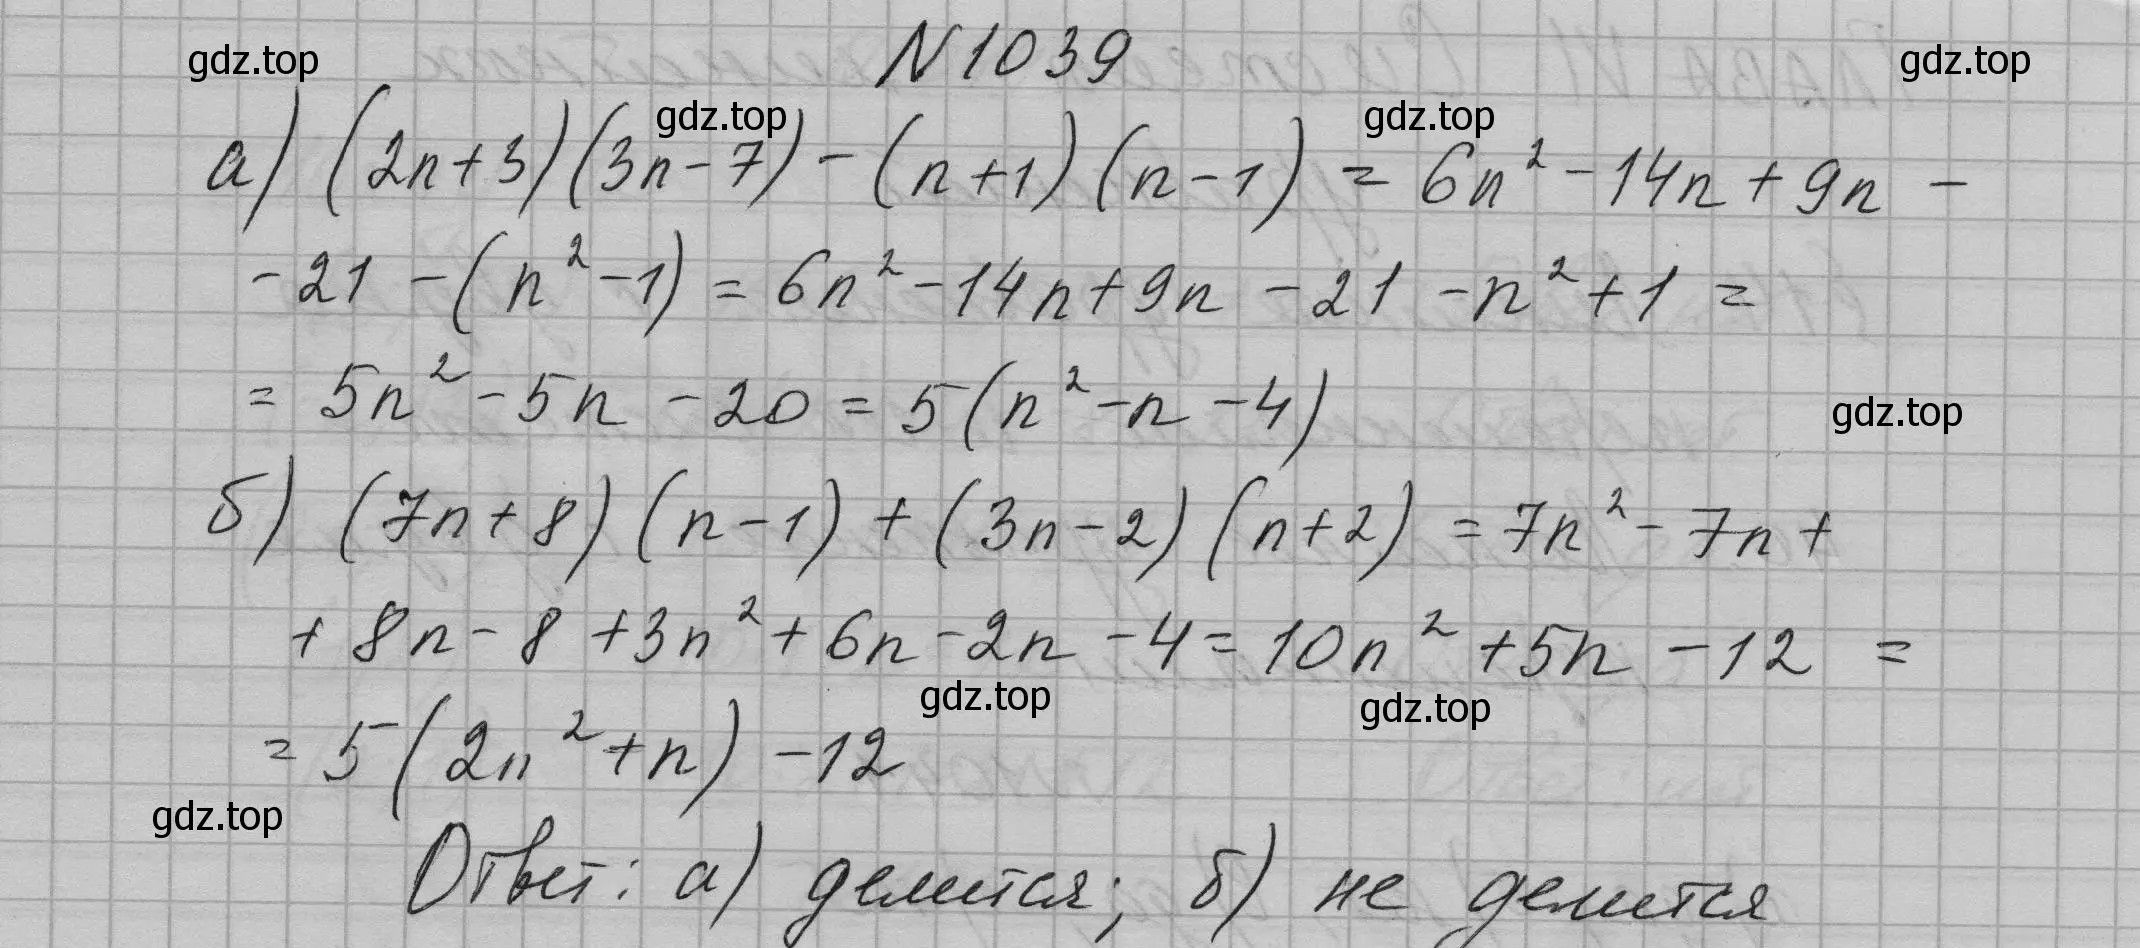 N 1039
gdz.top
gdz.top
gdz.top
gdz.top
а) (2n+3)(3n-7)-(n+1)(n-1)=6n²-14n+9n-
-21-(n²-1)=6n²-14n+9n-21-n²+1=
=5n²-5n-20=5(n²-n-4)
gdz.top
б) (7n+8)(n-1)+(3n-2)(n+2)=7n²-7n+
+8n-8+3n²+6n-2n-4=10n²+5n-12=
gdz.top
gdz.top
=5(2n²+n)-12
gdz.top
Ответ: а) делится; б) не делится